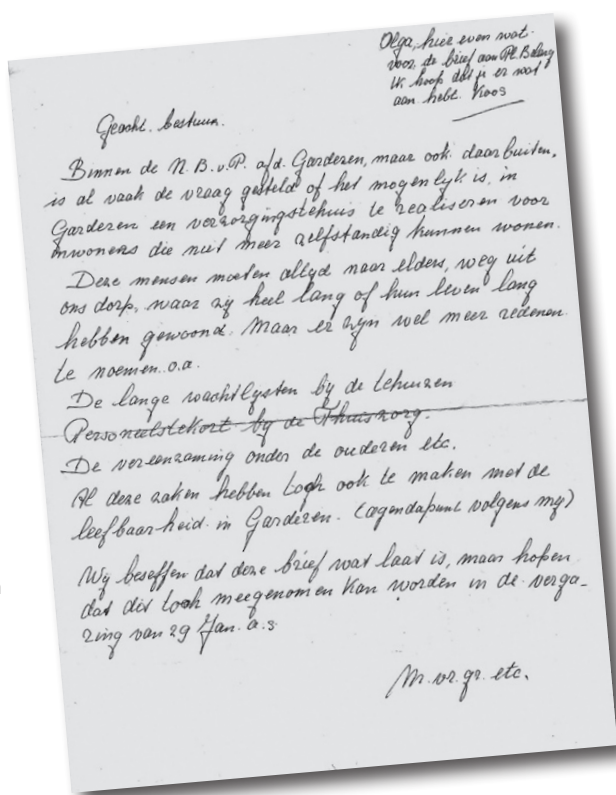 Olga, hier even wat
voor de brief aan Pl. Belang
Ik hoop dat je er wat
aan hebt. Koos
Geacht. bestuur.
Binnen de N.B.v.P. afd. Garderen, maar ook daarbuiten,
is al vaak de vraag gesteld of het mogenlyk is, in
Garderen een verzorgingstehuis te realiseren voor
inwoners die niet meer zelfstandig kunnen wonen.
Deze mensen moeten altyd naar elders, weg uit
ons dorp, waar zy heel lang of hun leven lang
hebben gewoond. Maar er zyn wel meer redenen
te noemen o.a.
De lange wachtlysten by de tehuizen
Personeelstekort by de Thuiszorg.
De vereenzaming onder de ouderen etc.
Al deze zaken hebben toch ook te maken met de
leefbaarheid in Garderen. (agendapunt volgens my)
Wy beseffen dat deze brief wat laat is, maar hopen
dat dit toch meegenomen kan worden in de verga-
ring van 29 Jan. a.s.
M. vr. gr. etc.